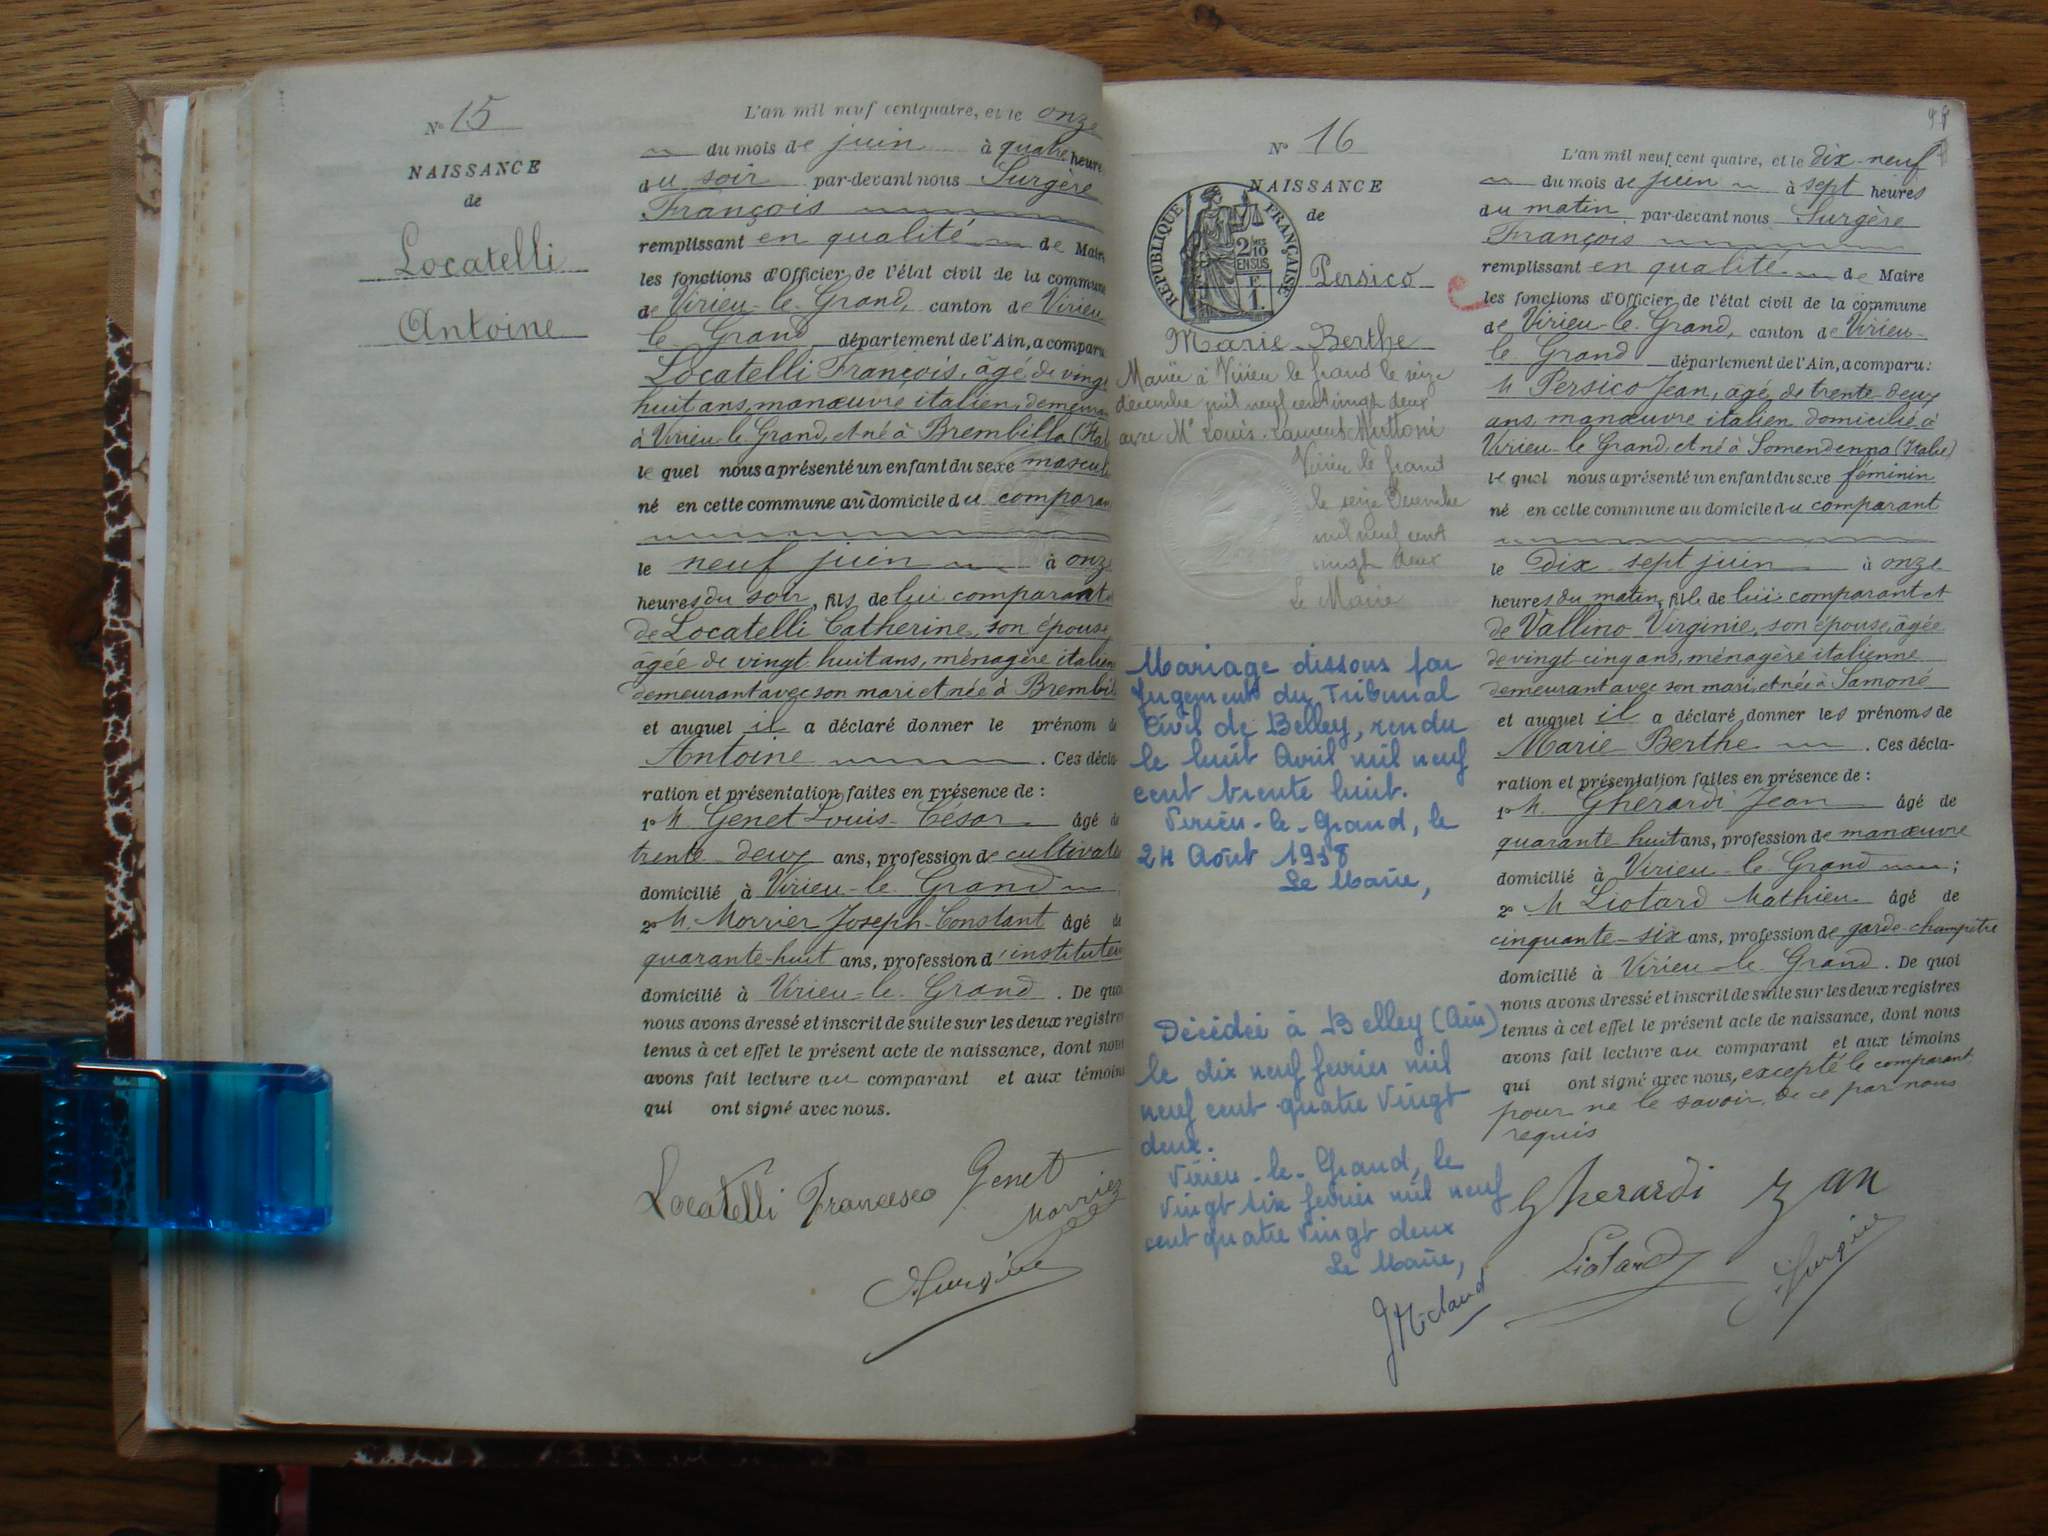 N° 15
NAISSANCE
de
Locatelli
Antoine
L'an mil neuf cent quatre, et le onze
du mois de juin à quatre heure
du soir par-devant nous Surgère
François
remplissant en qualité de Maire
les fonctions d'Officier de l'état civil de la commune
de Virieu-le-Grand, canton de Virieu
le Grand, département de l'Ain, a comparu
Locatelli François, âgé de vingt
huit ans, manœuvre italien, demeurant
à Virieu-le-Grand, et né à Brembilla (Ital
le quel nous a présenté un enfant du sexe mascul
né en cette commune au domicile du comparan
le neuf juin à onze
heures du soir, fils de lui comparant et
de Locatelli Catherine, son épouse,
âgée de vingt huit ans, ménagère italien
demeurant avec son mari et née à Brembil
et auquel il a déclaré donner le prénom de
Antoine . Ces décla
ration et présentation faites en présence de :
1° M. Genet Louis-César âgé de
trente deux ans, profession de cultivate
domicilié à Virieu-le-Grand
2° M. Morrier Joseph-Constant âgé de
quarante-huit ans, profession d'instituteu
domicilié à Virieu-le-Grand . De quoi
nous avons dressé et inscrit de suite sur les deux registre
tenus à cet effet le présent acte de naissance, dont nou
avons fait lecture au comparant et aux témoins
qui ont signé avec nous.
Locatelli Francesco Genet
Morrier
Surgère
N° 16
NAISSANCE
de
RÉPUBLIQUE FRANÇAISE
2/10
EN SUS
F
1.
Persico
Marie-Berthe
Mariée à Virieu le Grand le seize
décembre mil neuf cent vingt deux
avec Mr Louis-Laurent Muttoni
Virieu le Grand
le seize Décembre
mil neuf cent
vingt deux
Le Maire
Mariage dissous par
jugement du Tribunal
Civil de Belley, rendu
le huit Avril mil neuf
cent trente huit.
Virieu-le-Grand, le
24 Août 1938
Le Maire,
Décédée à Belley (Ain)
le dix neuf février mil
neuf cent quatre vingt
deux.
Virieu-le-Grand, le
vingt six février mil neuf
cent quatre vingt deux
Le Maire,
L'an mil neuf cent quatre, et le dix-neuf
du mois de juin à sept heures
du matin par-devant nous Surgère
François
remplissant en qualité de Maire
les fonctions d'Officier de l'état civil de la commune
de Virieu-le-Grand, canton de Virieu-
le Grand département de l'Ain, a comparu :
M Persico Jean, âgé de trente-deux
ans, manœuvre italien domicilié à
Virieu-le-Grand, et né à Somendenna (Italie)
le quel nous a présenté un enfant du sexe féminin
né en cette commune au domicile du comparant
le dix-sept juin à onze
heures du matin, fille de lui comparant et
de Vallino Virginie, son épouse, âgée
de vingt-cinq ans, ménagère italienne
demeurant avec son mari, et née à Samone
et auquel il a déclaré donner les prénoms de
Marie Berthe . Ces décla-
ration et présentation faites en présence de :
1° M. Gherardi Jean âgé de
quarante huit ans, profession de manœuvre
domicilié à Virieu-le-Grand ;
2° M Liotard Mathieu âgé de
cinquante-six ans, profession de garde-champêtre
domicilié à Virieu-le-Grand . De quoi
nous avons dressé et inscrit de suite sur les deux registres
tenus à cet effet le présent acte de naissance, dont nous
avons fait lecture au comparant et aux témoins
qui ont signé avec nous, excepté le comparant
pour ne le savoir, de ce par nous
requis
Gherardi
Liotard
Surgère